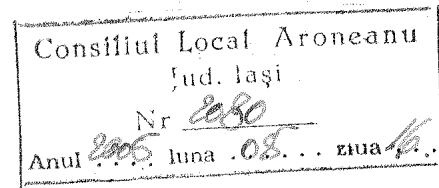 Consiliul Local Aroneanu
Jud. Iași
Nr 2080
Anul 2006 luna .08. . . ziua 16. .